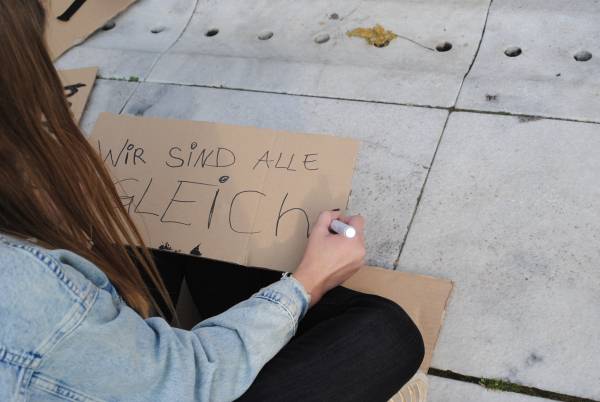 WiR SiND ALLE
GLEiCh